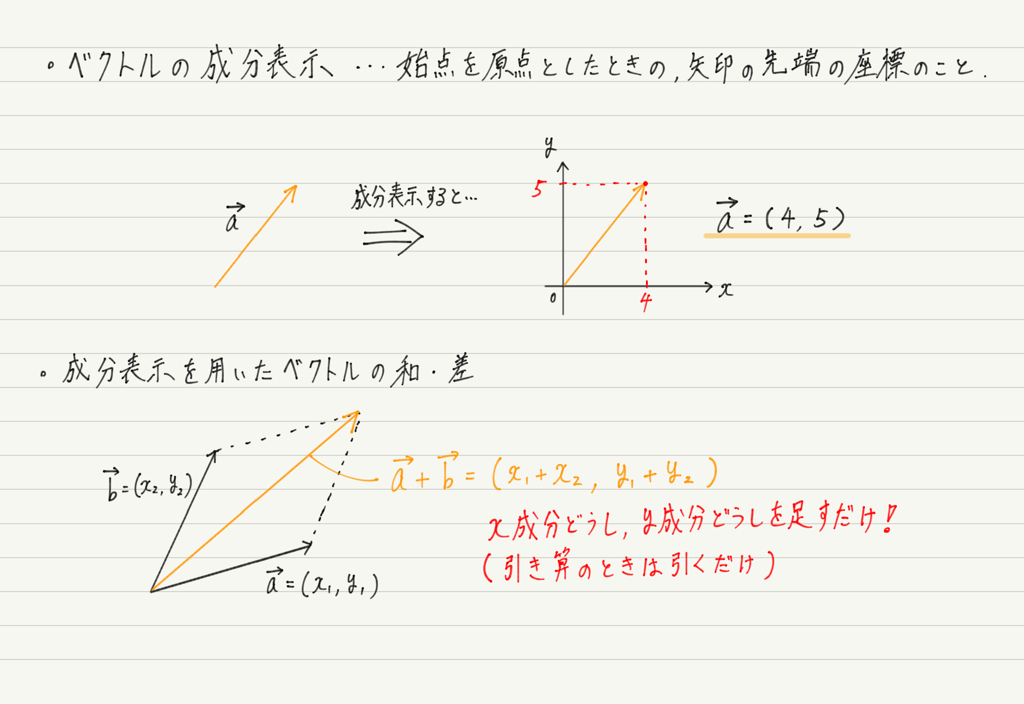 ・ベクトルの成分表示 … 始点を原点としたときの,矢印の先端の座標のこと.
a→
成分表示すると…
⇒
y
5
0
4
x
a→ = (4, 5)
・成分表示を用いたベクトルの和・差
b→ = (x₂, y₂)
a→ + b→ = (x₁+x₂, y₁+y₂)
x成分どうし,y成分どうしを足すだけ!
(引き算のときは引くだけ)
a→ = (x₁, y₁)